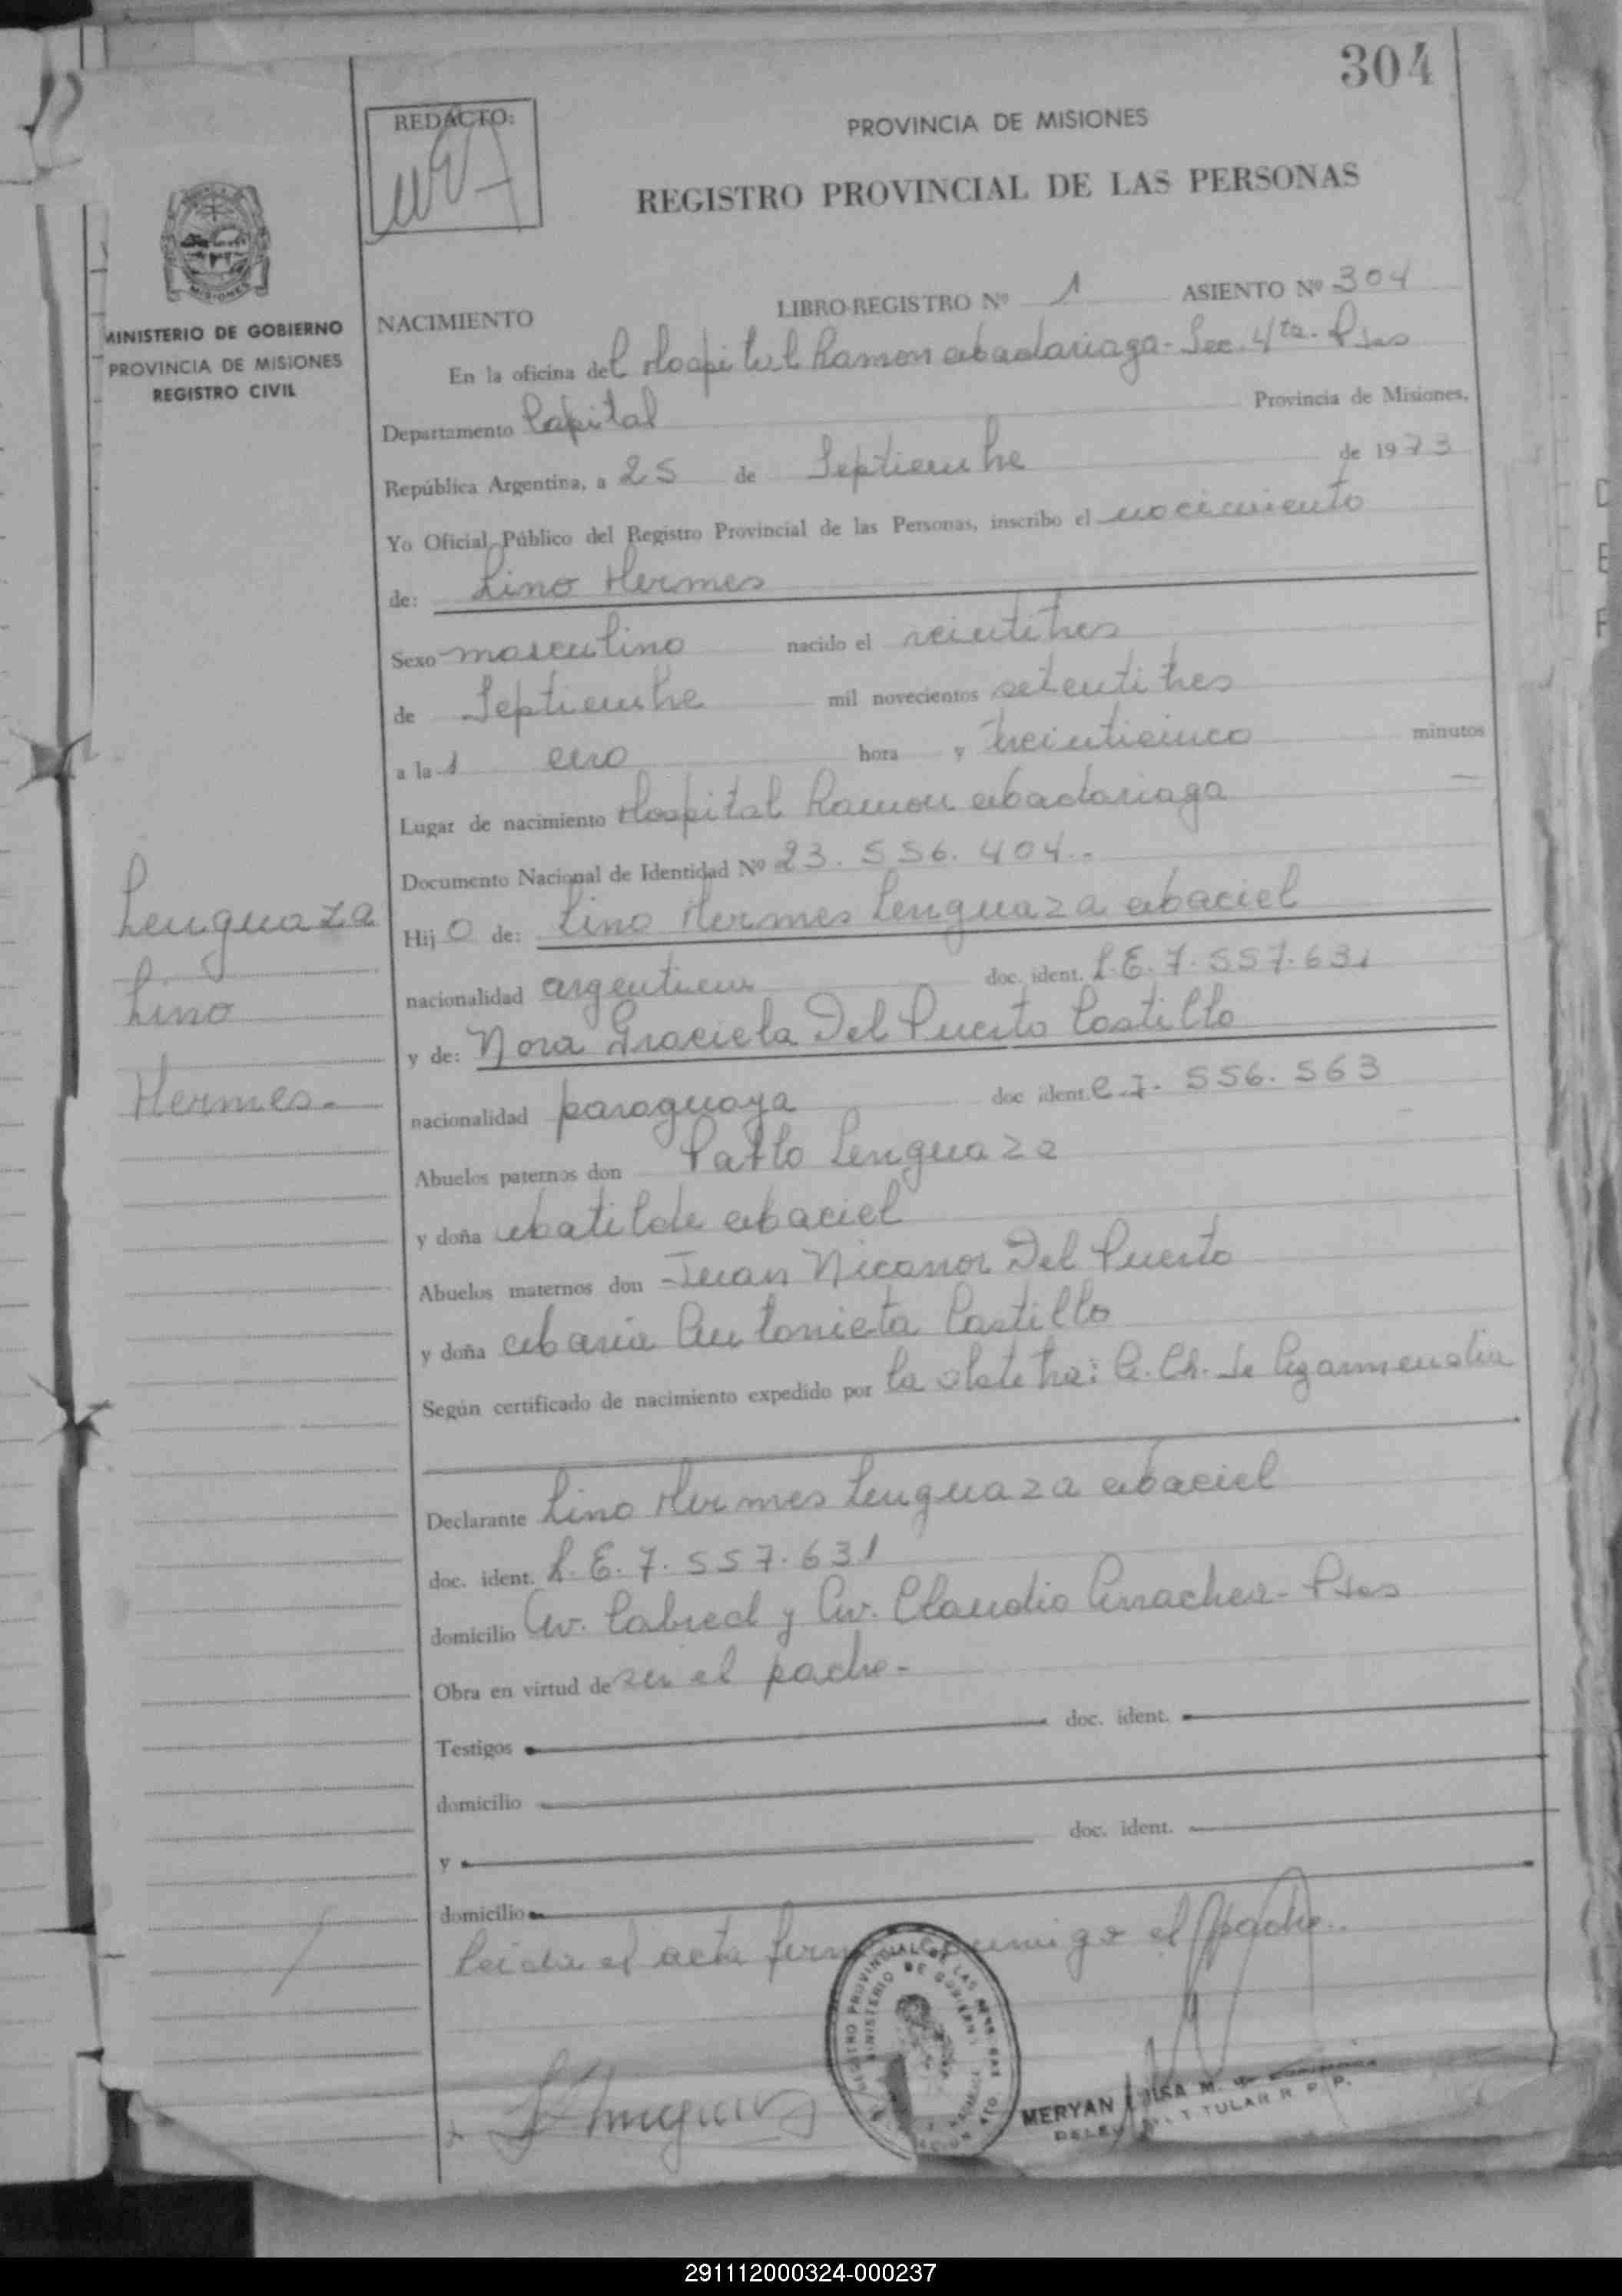 304
REDACTO:
PROVINCIA DE MISIONES
REGISTRO PROVINCIAL DE LAS PERSONAS
MISIONES
MINISTERIO DE GOBIERNO
PROVINCIA DE MISIONES
REGISTRO CIVIL
NACIMIENTO LIBRO-REGISTRO Nº 1 ASIENTO Nº 304
En la oficina del Hospital Ramon Madariaga - Sec. 4ta. Pdas
Departamento Capital Provincia de Misiones,
República Argentina, a 25 de Septiembre de 1973
Yo Oficial Público del Registro Provincial de las Personas, inscribo el nacimiento
de: Lino Hermes
Sexo masculino nacido el veintitres
de Septiembre mil novecientos setentitres
a la 1 una hora y treinticinco minutos
Lugar de nacimiento Hospital Ramon Madariaga
Documento Nacional de Identidad Nº 23.556.404.-
Hijo de: Lino Hermes Lenguaza Maciel
nacionalidad argentina doc. ident. L.E. 7.557.631
y de: Nora Graciela Del Puerto Castillo
nacionalidad paraguaya doc ident. C.I. 556.563
Abuelos paternos don Pablo Lenguaza
y doña Matilde Maciel
Abuelos maternos don Juan Nicanor Del Puerto
y doña Maria Antonieta Castillo
Según certificado de nacimiento expedido por la obstetra: C. Ch. de
Declarante Lino Hermes Lenguaza Maciel
doc. ident. L.E. 7.557.631
domicilio Av. Cabred y Av. Claudio Arrechea - Pdas
Obra en virtud de ser el padre.-
Testigos doc. ident.
domicilio
y doc. ident.
domicilio
Leida el acta firma conmigo el padre..
Lenguaza
Lino
Hermes.-
REGISTRO PROVINCIAL DE LAS PERSONAS
MINISTERIO DE GOBIERNO
MERYAN LUISA M. de
TITULAR R. P. P.
291112000324-000237